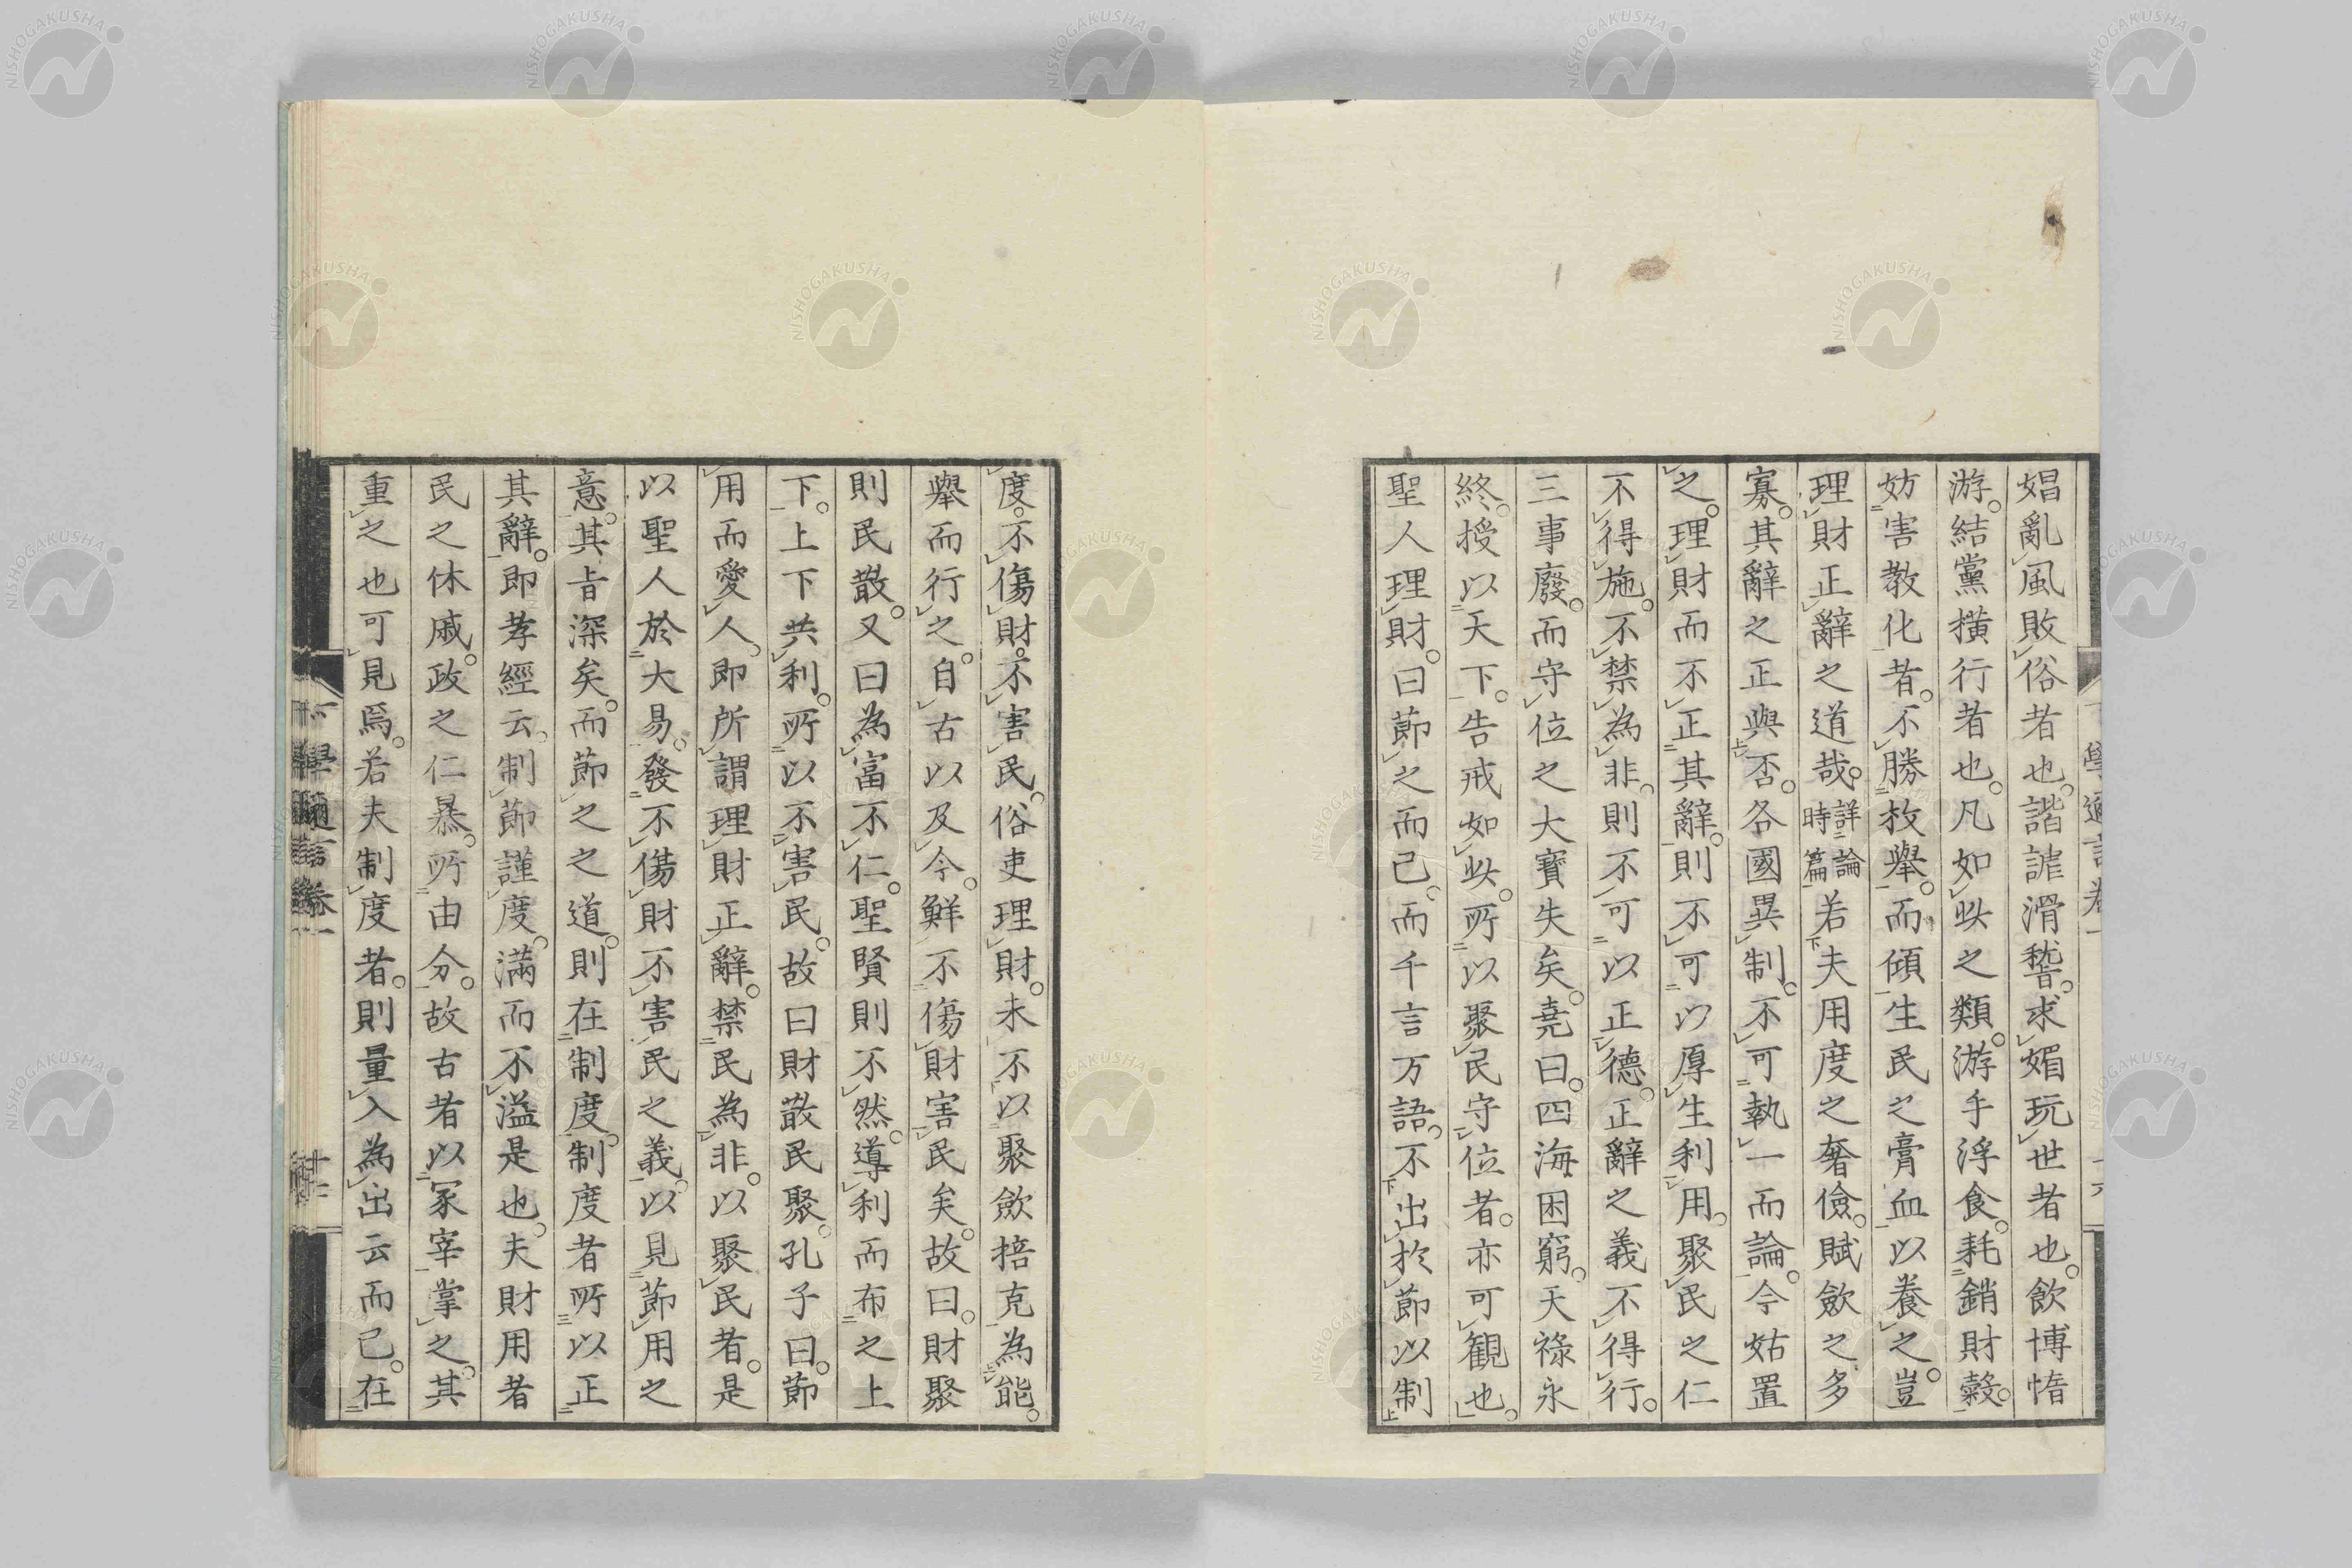 娼亂風敗俗者也。諧謔滑稽。求媚玩世者也。飲博惰
游。結黨横行者也。凡如此之類。游手浮食。耗銷財穀。
妨害教化者。不勝枚舉。而傾生民之膏血以養之。豈
理財正辭之道哉。詳論時篇若夫用度之奢儉。賦斂之多
寡。其辭之正與否。各國異制。不可執一而論。今姑置
之。理財而不正其辭。則不可以厚生利用。聚民之仁
不得施。不禁為非。則不可以正德。正辭之義不得行。
三事廢。而守位之大寶失矣。堯曰。四海困窮。天祿永
終。授以天下。告戒如此。所以聚民守位者。亦可観也。
聖人理財。曰節之而已。而千言万語。不出於節以制
度。不傷財。不害民。俗吏理財。未不以聚斂掊克為能。
舉而行之。自古以及今。鮮不傷財害民矣。故曰。財聚
則民散。又曰為富不仁。聖賢則不然。導利而布之上
下。上下共利。所以不害民。故曰財散民聚。孔子曰。節
用而愛人。人即所謂理財正辭。禁民為非。以聚民者。是
以聖人於大易。發不傷財不害民之義。以見節用之
意。其旨深矣。而節之之道。則在制度。制度者所以正
其辭。即孝經云。制節謹度。滿而不溢是也。夫財用者
民之休戚。政之仁暴。所由分。故古者以冢宰掌之。其
重之也可見焉。若夫制度者。則量入為出云而已。在
學通言卷一
NISHOGAKUSHA